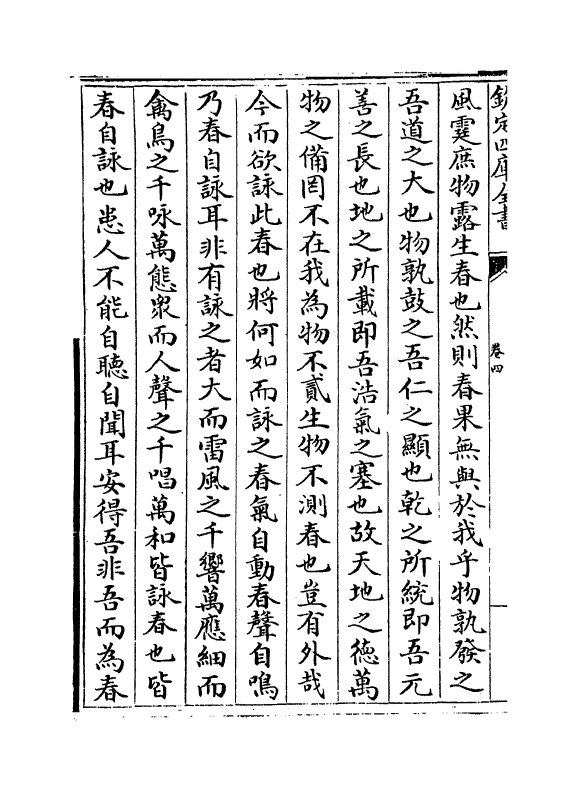 欽定四庫全書
卷四
風霆庶物露生春也然則春果無與於我乎物孰發之
吾道之大也物孰鼓之吾仁之顯也乾之所統即吾元
善之長也地之所載即吾浩氣之塞也故天地之德萬
物之備罔不在我為物不貳生物不測春也豈有外哉
今而欲詠此春也將何如而詠之春氣自動春聲自鳴
乃春自詠耳非有詠之者大而雷風之千響萬應細而
禽鳥之千咏萬態衆而人聲之千唱萬和皆詠春也皆
春自詠也患人不能自聽自聞耳安得吾非吾而為春